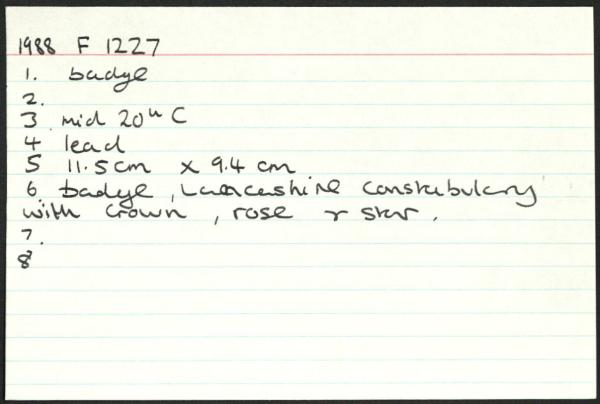 1988 F 1227
1. badge
2.
3 mid 20th C
4 lead
5 11.5cm x 9.4 cm
6 badge, Lancashire Constabulary
with Crown, rose & star.
7.
8